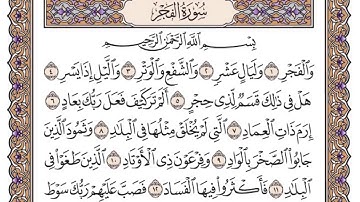 سُورَةُ الفَجْرِ
بِسْمِ اللَّهِ الرَّحْمَٰنِ الرَّحِيمِ
وَالْفَجْرِ ١ وَلَيَالٍ عَشْرٍ ٢ وَالشَّفْعِ وَالْوَتْرِ ٣ وَاللَّيْلِ إِذَا يَسْرِ ٤
هَلْ فِي ذَٰلِكَ قَسَمٌ لِّذِي حِجْرٍ ٥ أَلَمْ تَرَ كَيْفَ فَعَلَ رَبُّكَ بِعَادٍ ٦
إِرَمَ ذَاتِ الْعِمَادِ ٧ الَّتِي لَمْ يُخْلَقْ مِثْلُهَا فِي الْبِلَٰدِ ٨ وَثَمُودَ الَّذِينَ
جَابُوا الصَّخْرَ بِالْوَادِ ٩ وَفِرْعَوْنَ ذِي الْأَوْتَادِ ١٠ الَّذِينَ طَغَوْا فِي
الْبِلَٰدِ ١١ فَأَكْثَرُوا فِيهَا الْفَسَادَ ١٢ فَصَبَّ عَلَيْهِمْ رَبُّكَ سَوْطَ